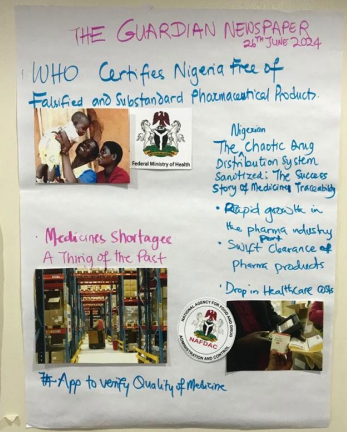 THE GUARDIAN NEWSPAPER
26TH JUNE 2024
WHO Certifies Nigeria Free of
Falsified and Substandard Pharmaceutical Products.
Federal Ministry of Health
Nigerian
The Chaotic Drug
Distribution System
Sanitized: The Success
Story of Medicine Traceability
• Rapid growth in
the pharma industry
• Swift Port Clearance of
Pharma products
• Drop in Healthcare costs
• Medicines Shortage
A Thing of the Past
NATIONAL AGENCY FOR FOOD AND DRUG
ADMINISTRATION AND CONTROL
NAFDAC
#-App to verify Quality of Medicine